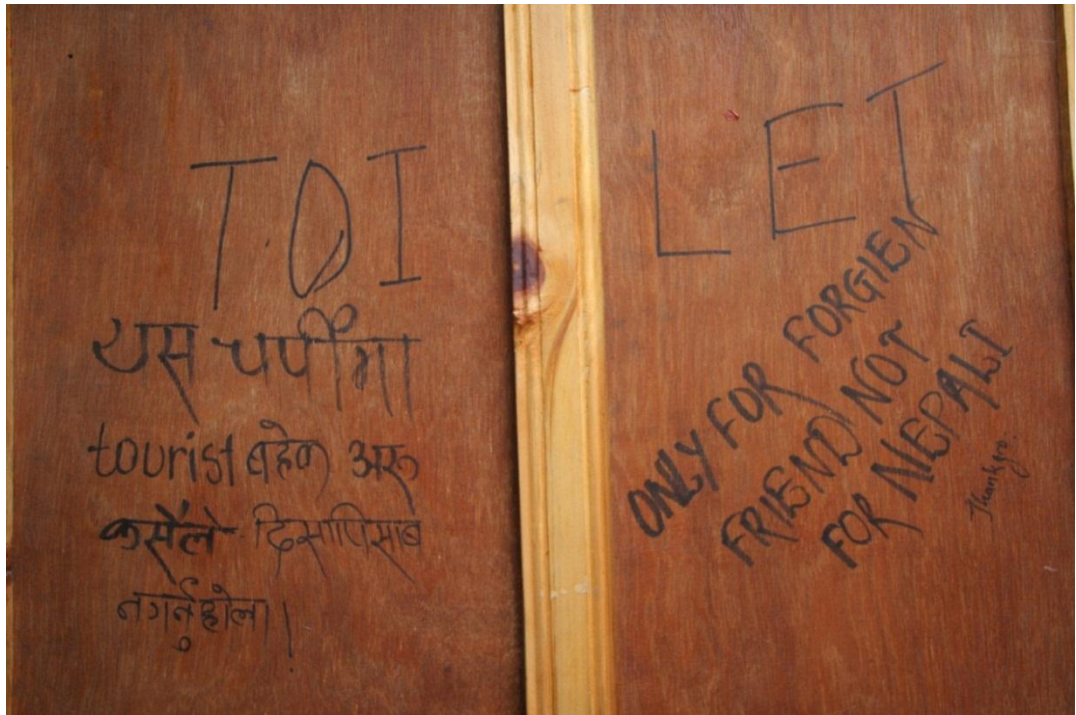 TOI LET
यस चर्पीमा
tourist बाहेक अरू
कसैले दिसापिसाब
नगर्नुहोला।
ONLY FOR FORGIEN
FRIEND NOT
FOR NEPALI
Thank you